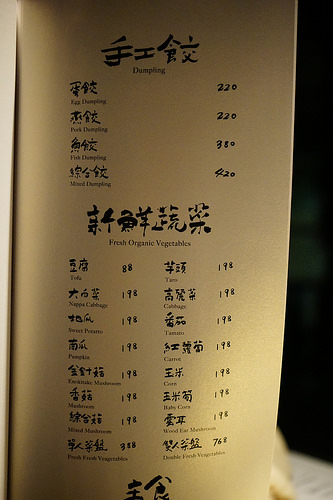 手工餃
Dumpling
蛋餃 220
Egg Dumpling
燕餃 220
Pork Dumpling
魚餃 380
Fish Dumpling
綜合餃 420
Mixed Dumpling
新鮮蔬菜
Fresh Organic Vegetables
豆腐 88 芋頭 198
Tofu Taro
大白菜 198 高麗菜 198
Nappa Cabbage Cabbage
地瓜 198 番茄 198
Sweet Potatto Tamato
南瓜 198 紅蘿蔔 198
Pumpkin Carrot
金針菇 198 玉米 198
Enokitake Mushroom Corn
香菇 198 玉米筍 198
Mushroom Baby Corn
綜合菇 198 雲耳 198
Mixed Mushroom Wood Ear Mushroom
單人菜盤 388 雙人菜盤 768
Fresh Fresh Veagetables Double Fresh Veagetables
主食